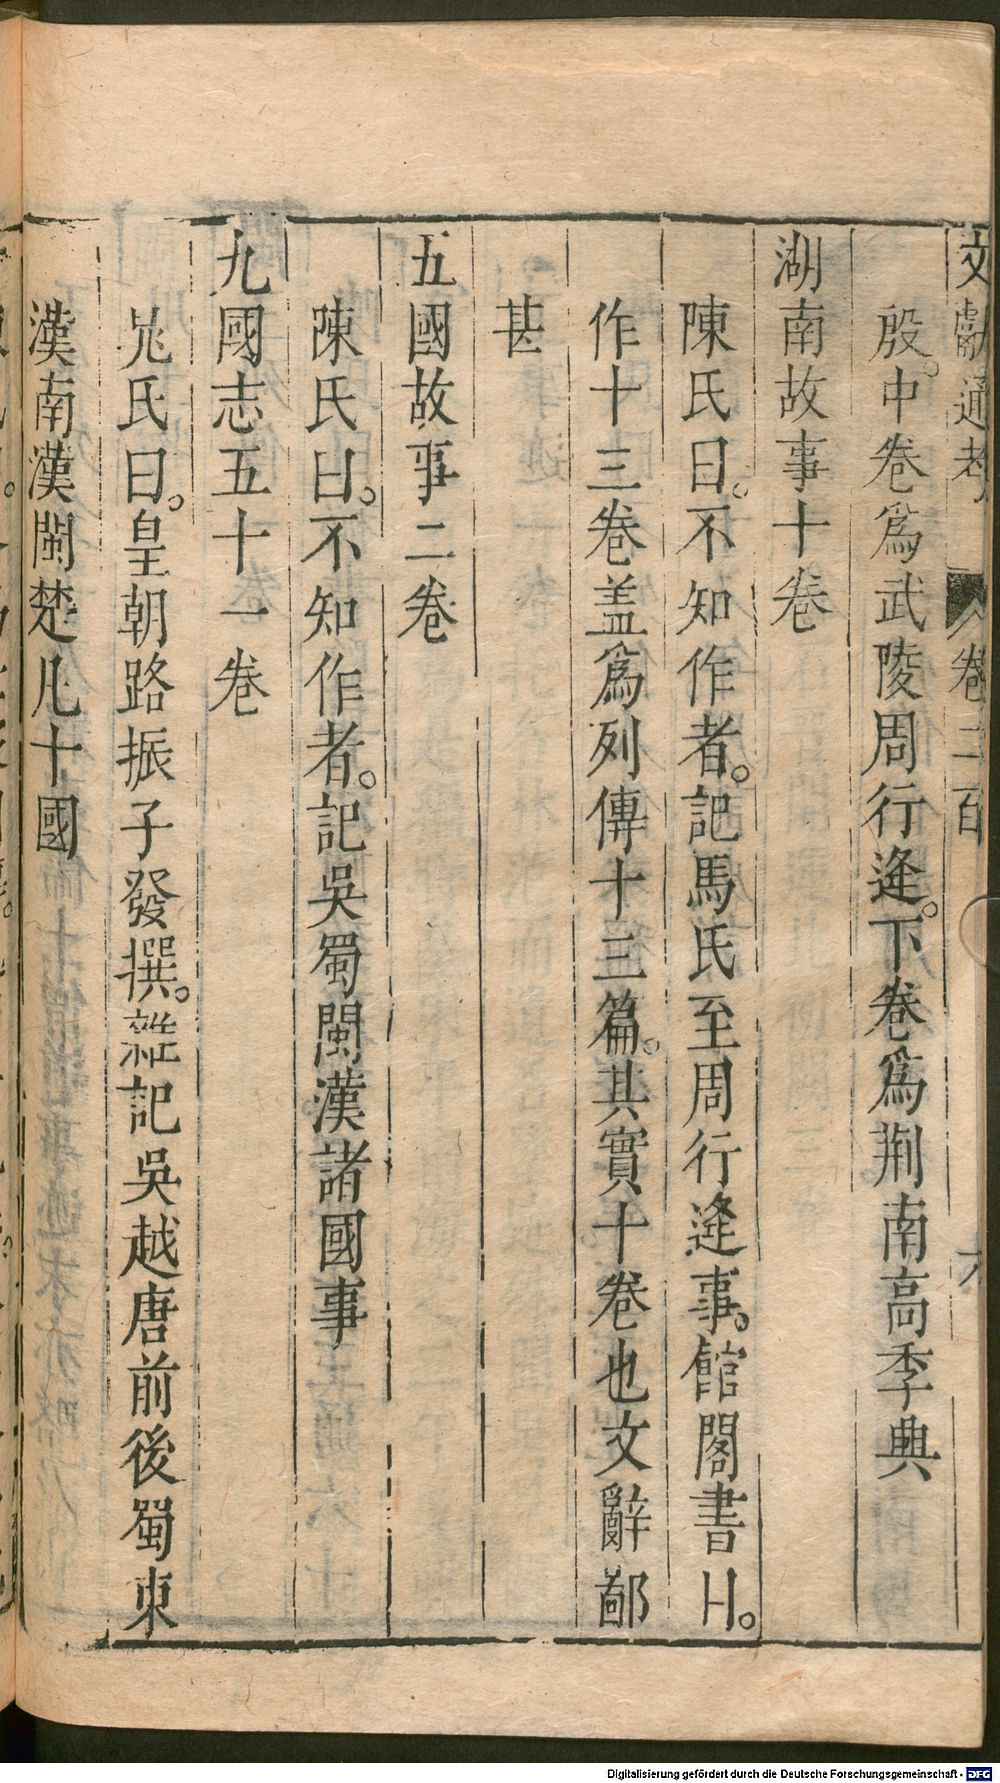 文獻通考 卷二百 六
殷。中卷爲武陵周行逢。下卷爲荆南高季興
湖南故事十卷
陳氏曰。不知作者。記馬氏至周行逢事。館閣書目。
作十三卷盖爲列傳十三篇。其實十卷也文辭鄙
甚
五國故事二卷
陳氏曰。不知作者。記吳蜀閩漢諸國事
九國志五十一卷
晁氏曰。皇朝路振子發撰。雜記吳越唐前後蜀東
漢南漢閩楚凡十國
Digitalisierung gefördert durch die Deutsche Forschungsgemeinschaft - DFG